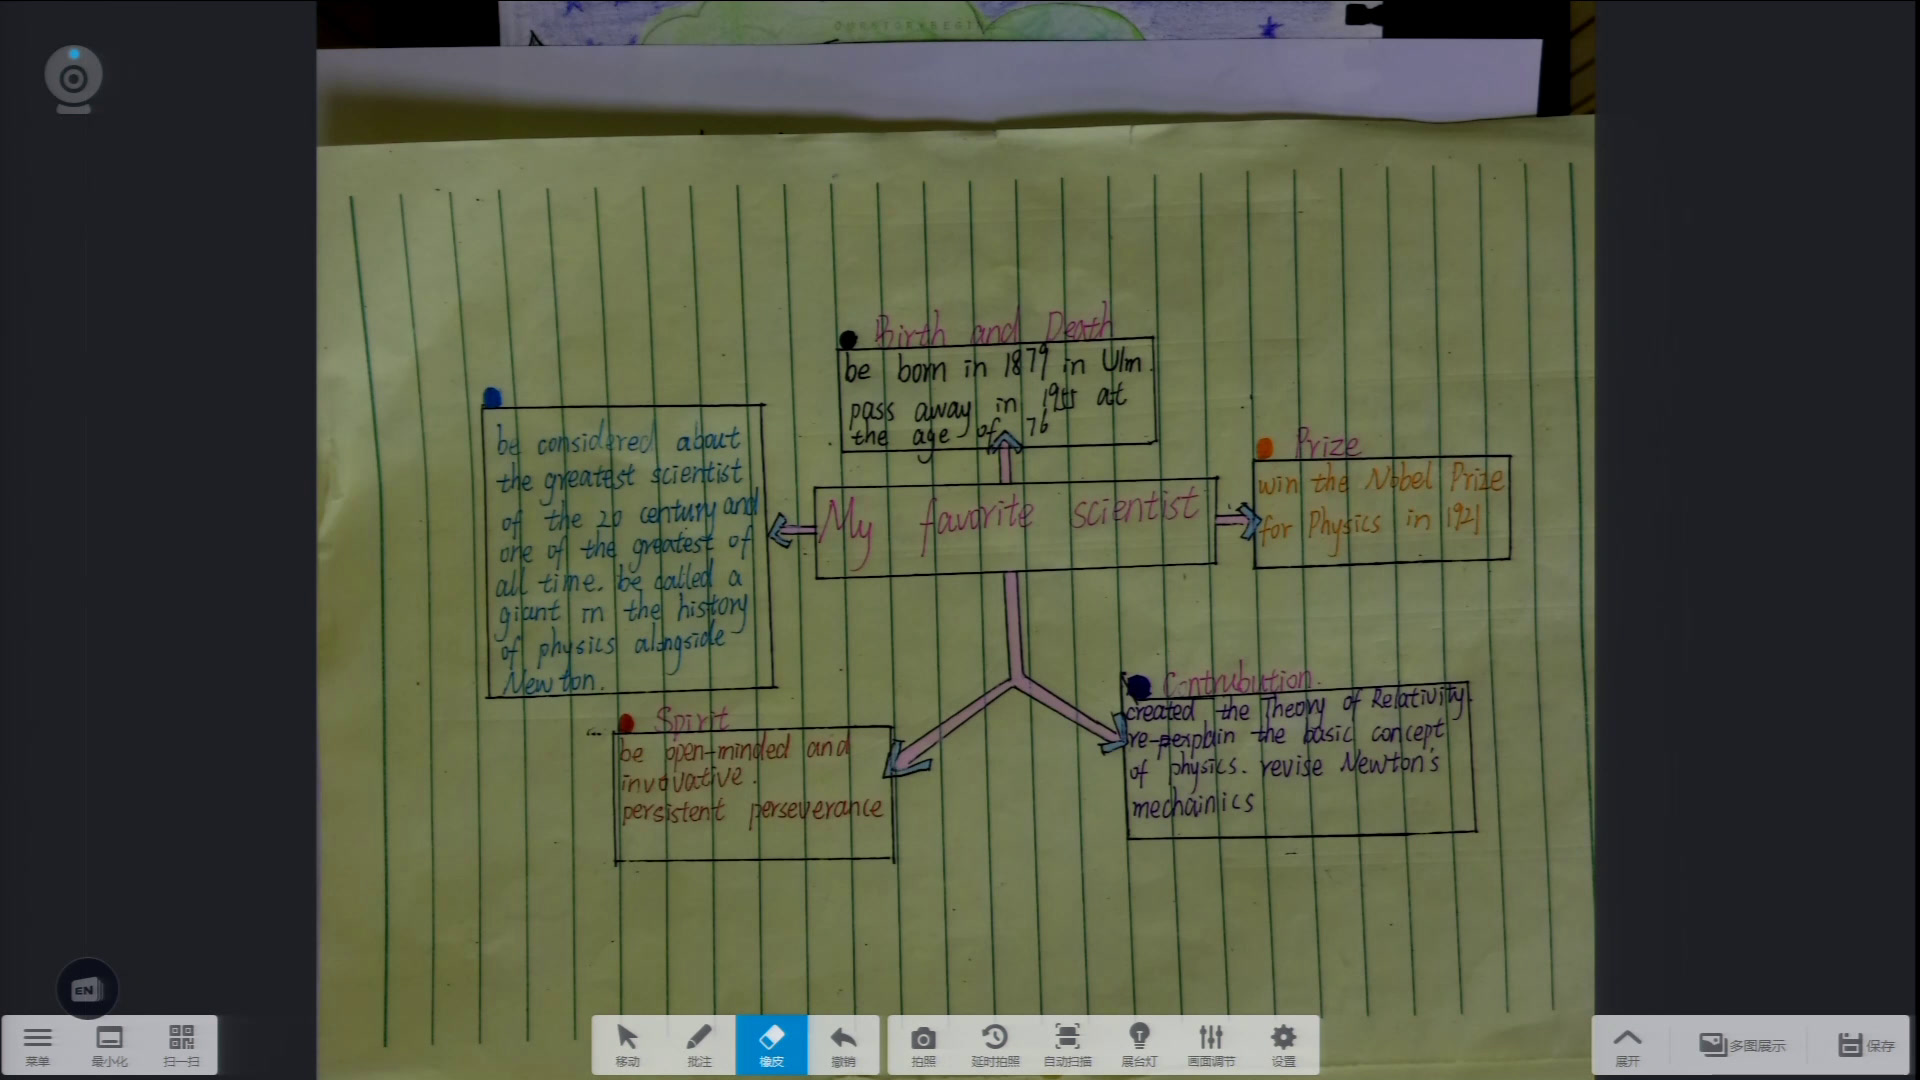 OURSTORYBEGINS
Birth and Death
be born in 1879 in Ulm.
pass away in 1955 at
the age of 76
be considered about
the greatest scientist
of the 20 century and
one of the greatest of
all time. be called a
giant in the history
of physics alongside
Newton.
My favorite scientist
Prize
win the Nobel Prize
for Physics in 1921
Spirit
be open-minded and
invovative.
persistent perseverance
Contrubution.
created the Theory of Relativity.
re-perplain the basic concept
of physics. revise Newton's
mechainics
EN
菜单
最小化
扫一扫
移动
批注
橡皮
撤销
拍照
延时拍照
自动扫描
展台灯
画面调节
设置
展开
多图展示
保存